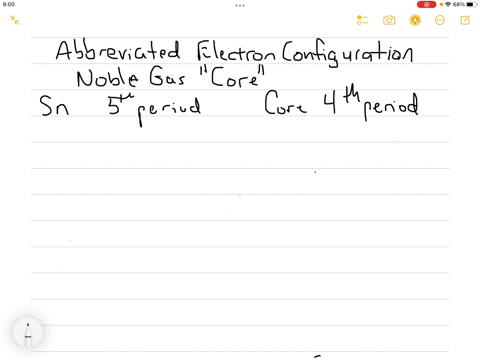 9:00
68%
Abbreviated Electron Configuration
Noble Gas "Core"
Sn 5th period Core 4th period